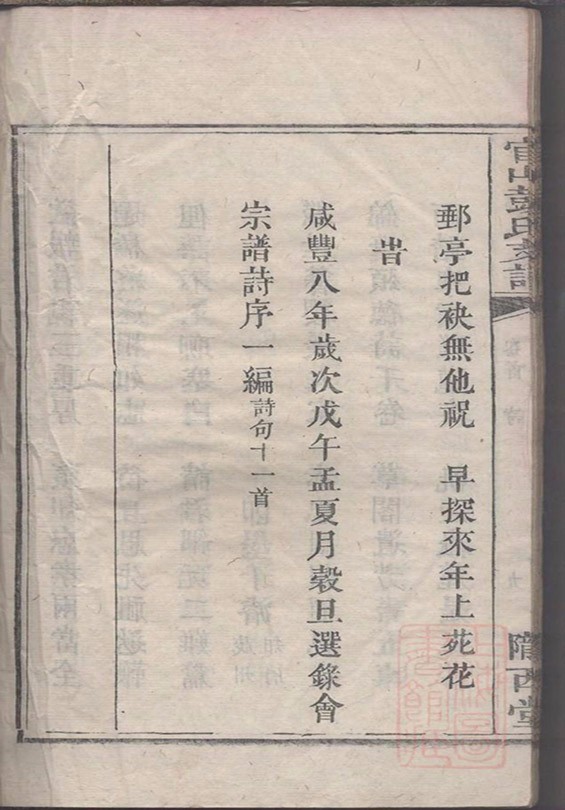 官山彭氏支譜
卷首 詩
九
隴西堂
郵亭把袂無他祝 早探來年上苑花
旹
咸豐八年歲次戊午孟夏月穀旦選錄會
宗譜詩序一編詩句十一首